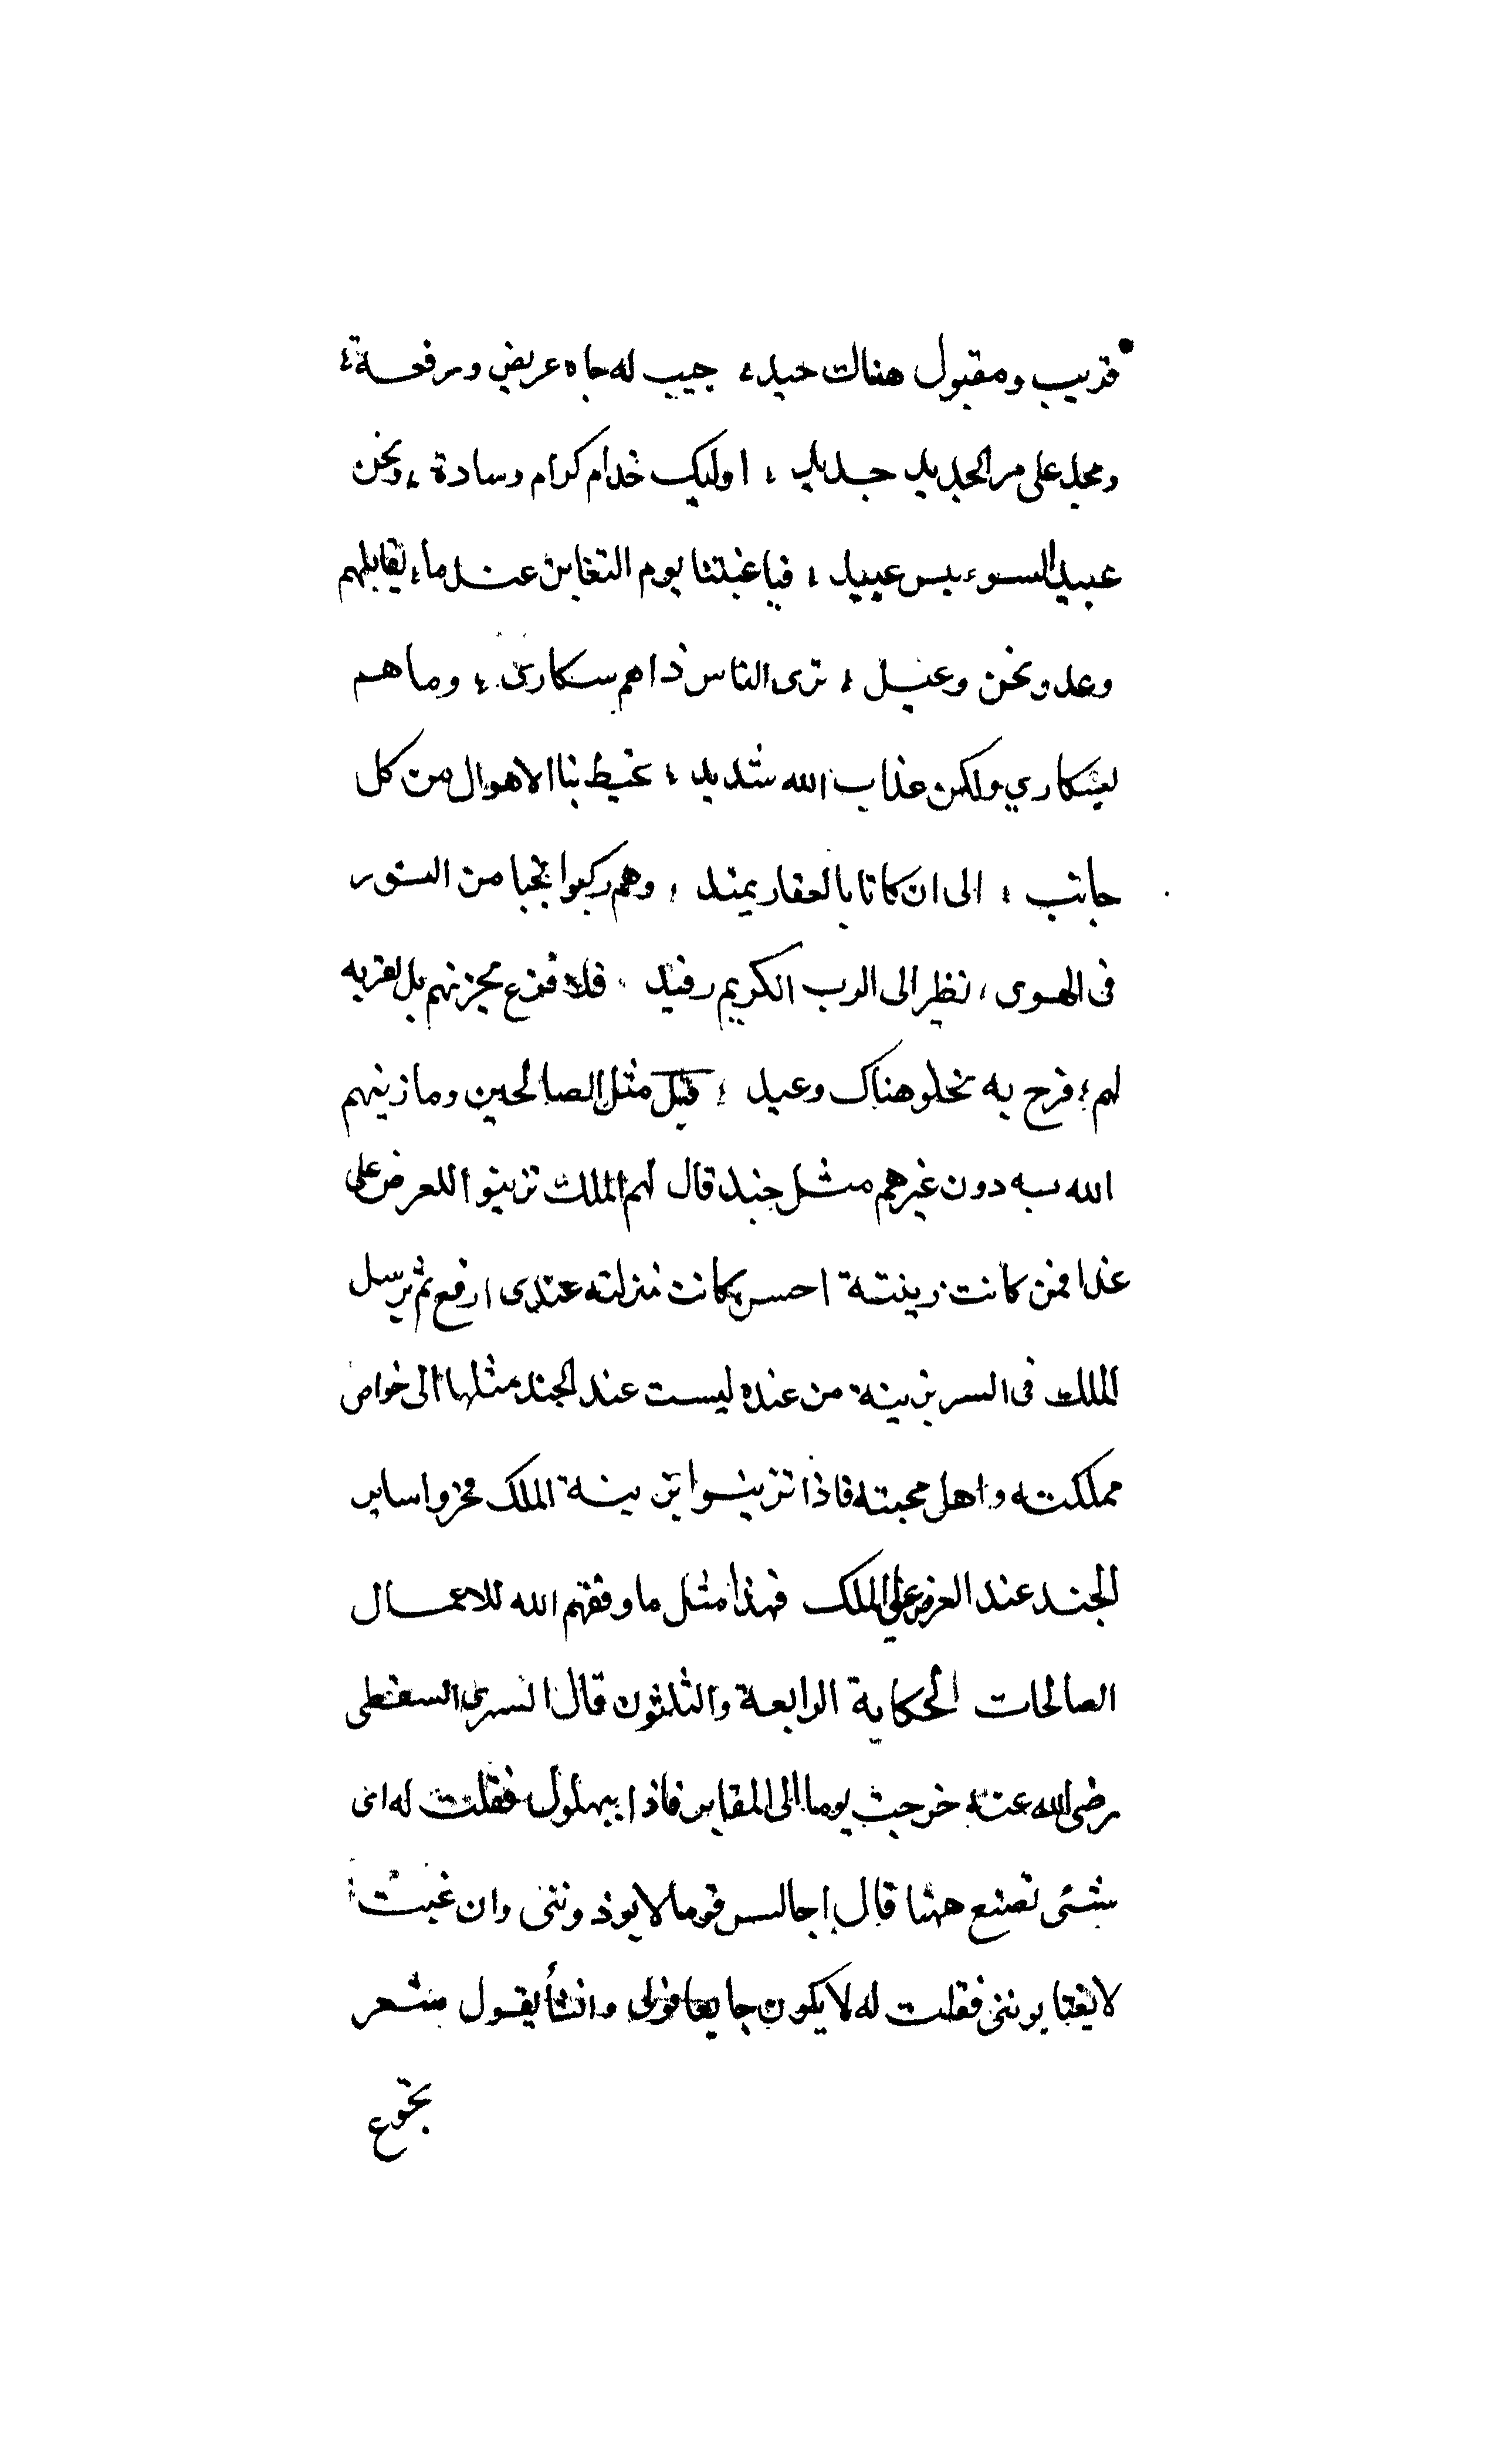 قريب ومقبول هناك حيد، حبيب له جاه عريض ورفعة،
ومجد على مر الجديد جديد ؛ اوليك خدام كرام وسادة ، ونحن
عبيد السوء بيس عبيد ؛ فيا غبتنا يوم التغابن عند ما، يقابلهم
وعد ونحن وعيد ؛ ترى الناس ذا هم سكارى ؛ وما هم
بسكاري ولكن عذاب الله شديد ؛ تحيط بنا الاهوال من كل
جانب ؛ الى ان كانا بالعقار يميد ؛ وهم ركبوا نجبا من النور
فى الهوى ، نظر الى الرب الكريم رفيد . فلا فزع يحزنهم بل لقربه
لهم؛ فرح به نحلو هناك وعيد ؛ قيل مثل الصالحين وما زينهم
الله به دون غيرهم مثل جند قال لهم الملك تزينوا للعرض على
غدا فمن كانت زينتة احسن كانت منزلته عندى ارفع ثم يرسل
الملك فى السر بزينة من عنده ليست عند الجند مثلها الى خواص
مملكته واهل محبته فاذا تزينوا بزينة الملك فخروا ساير
الجند عند العرض على الملك فهذا مثل ما وفقهم الله للاعمال
الصالحات الحكاية الرابعة والثلثون قال السرى السقطى
رضى الله عنه خرجت يوما الى المقابر فاذا ببهلول فقلت له اى
شئى تصنع ههنا قال اجالس قوما لا يوذوننى وان غبت
لا يغتابوننى فقلت له لا يكون جايعا فولى وانشأ يقول شعر
تجوع